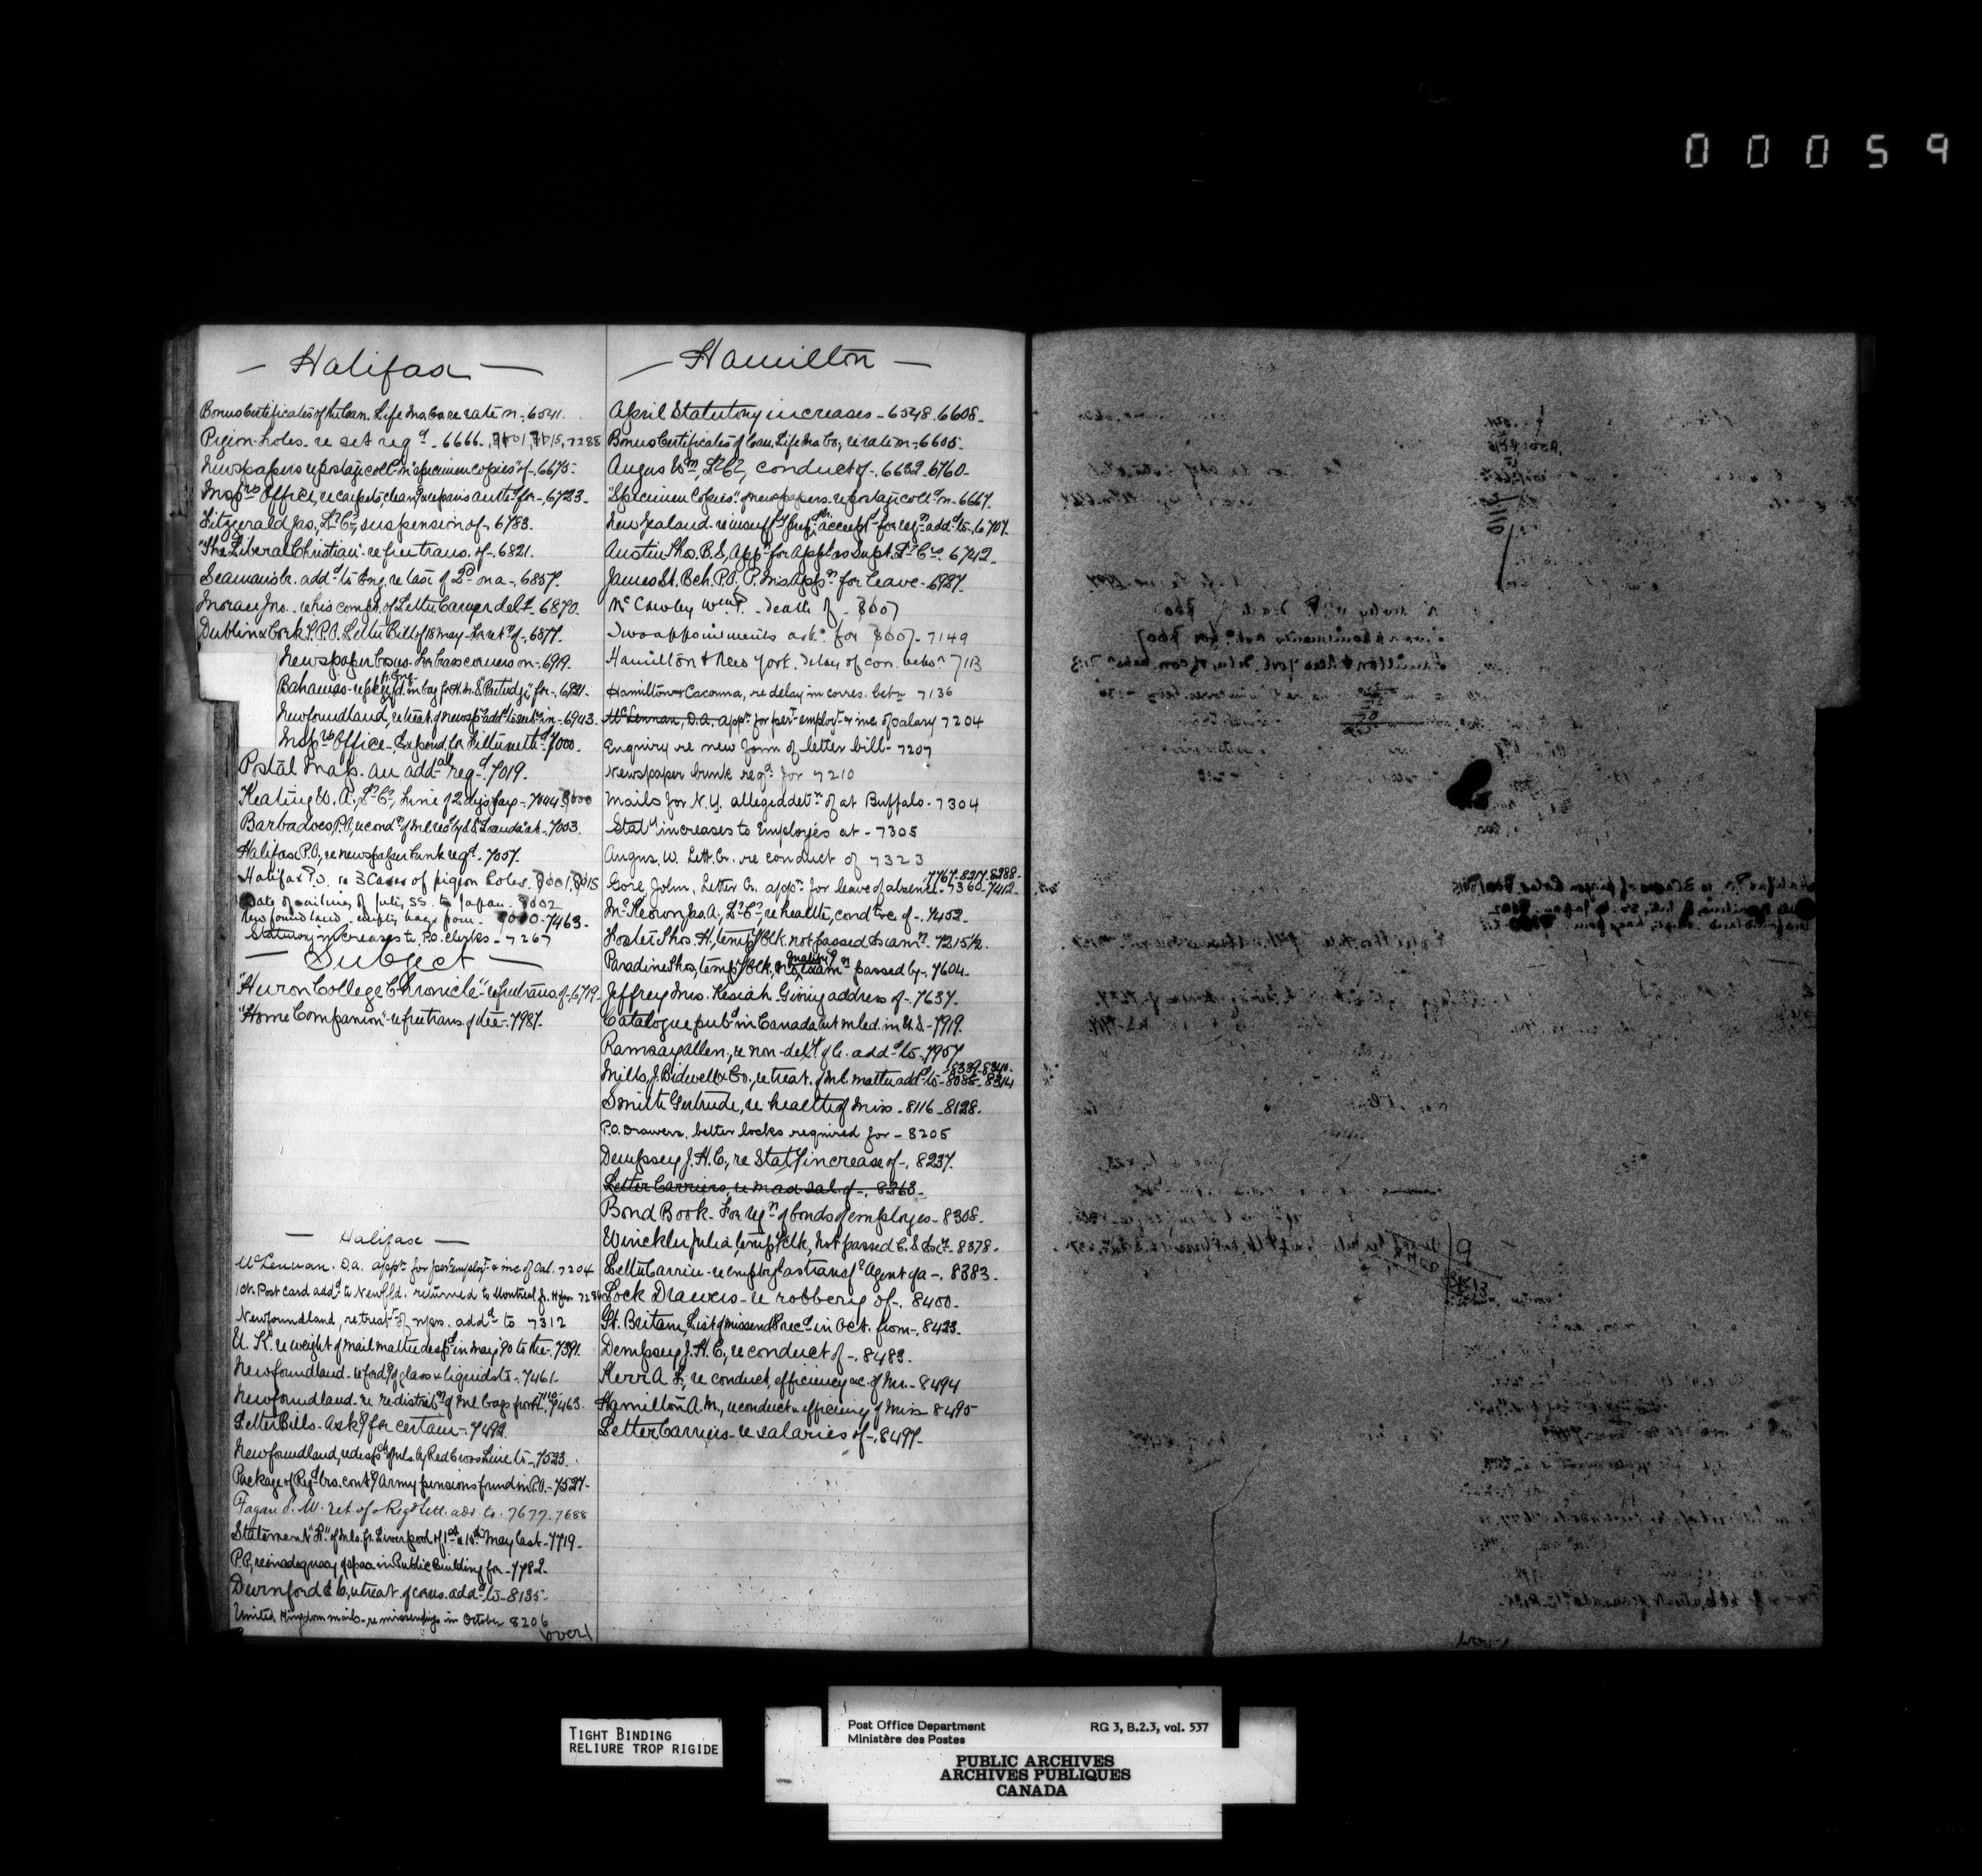 00059
— Halifax —
Bonus Certificates of the Can. Life Ins. Co. re rate on - 6541.
Pigeon-holes - re set reqd - 6666 -, 7001, 7015, 7288
Newspapers re postage coll. on "specimen copies" of - 6675 -
Insprs Office, re carpets, clean & repairs auth. for - 6723 -
Fitzgerald Jas., Lr Cr, suspension of - 6783.
"The Liberal Christian" - re free trans. of - 6821.
Seaman's br. addd to Eng. re late of Pd on a - 6857.
Moran Jno. - re his compt. of Letter Carrier delt - 6870.
Dublin & Cork P.P.O. Letter Bill of 18 May - for retn of - 6877.
Newspaper boxes - for brass corners on - 6919.
Bahamas - re pkge fd. fr. Eng. in bag for H.M.S. "Partridge" for - 6921 -
Newfoundland, re treat. of newsp. addd to & recd in - 6943 -
Insprs Office - Expend. for - 7000.
Postal Map - an addal reqd - 7019.
Keating W. A., Lr Cr, fine of 2 dys pay - 7044 - 8000
Barbadoes P.O., re condn of ml. recd by S.S. "Taunda" at - 7053.
Halifax P.O., re newspaper bunk reqd - 7057.
Halifax P.O. re 3 Cases of pigeon holes. 7001, 7015
Date of sailing of July, SS. to Japan. 7002
Newfoundland - empty bags from - 7000 - 7463 -
Statutory increases to P.O. clerks - 7267
— Subject —
"Huron College Chronicle" - re free trans. of - 6719 -
"Home Companion" - re free trans. of the - 7987.
— Halifax —
McLennan. D.A. appn for pert employt & inc of Sal. 7204
1ct. Post card addd to Newfld. returned to Montreal fr. Hfax
Newfoundland, re treatt of nps. addd to 7312
U. K. re weight of mail matter despd in May 90 to the - 7391.
Newfoundland - re fordg of glass & liquids to - 7461 -
Newfoundland - re re-distribn of ml. bags from - 7463.
Letter Bills - Askg for certain - 7492.
Newfoundland, re desph of mls. by Red Cross Line to - 7523.
Package of Regd lrs. contg Army pensions found in P.O. - 7527 -
Fagan P. W. ret. of a Regd lett. add. to. 7677. 7688
Statement "L" of mls. fr. Liverpool of 1st & 15th May last - 7719 -
P.O., re inadequacy of space in Public Building for - 7782 -
Durnford & Co, re treat. of corres. addd to - 8135 -
United Kingdom mails - re missendings in October 8206
(over)
— Hamilton —
April Statutory increases - 6548 - 6608 -
Bonus Certificates of Can. Life Ins Co., re rate on - 6605 -
Angus Wm, Lr Cr, conduct of - 6632 - 6760 -
"Specimen Copies" of newspapers - re postage colld on - 6667.
New Zealand - re insuffly prep. accepd for regn addd to - 6707.
Austin Thos. B.S., Appn for Appt as Supt. Lr Crs. 6742 -
James St. Bch. P.O., P. Ms Appn for leave - 6927.
McCawley Wm P. - Death of - 7007
Two appointments askd for 7007 - 7149
Hamilton & New York. Delay of cor. betwn 7113
Hamilton & Cacouna, re delay in corres. betn 7136
McLennan, D.A. appn for pert employt & inc of salary 7204
Enquiry re new form of letter bill - 7207
Newspaper bunk reqd for 7210
Mails for N.Y. alleged detn of at Buffalo - 7304
Staty increases to Employés at - 7305
Angus, W. Lett. Cr. re conduct of 7323
7767 - 8217 - 8288 -
Gore, John, Letter Cr. appn for leave of absence - 7360 - 7412 -
McKeown Jas. A., Lr Cr, re health, cond &c of - 7452 -
Foster Thos. H, tempy Clk. not passed Examn. 7215 1/2.
Paradine Thos, tempy Clk, no qualifyg Examn passed by - 7604 -
Jeffrey Mrs. Kesiah. Giving address of - 7637 -
Catalogue pubd in Canada but mled. in U.S. - 7919.
Ramsay Allen, re non-delY of lr. addd to - 7957
8339 - 8340 -
Mills, J. Bidwell & Co., re treat. of ml. matter addd to - 8085 - 8314
Smith Gertrude, re health of Miss - 8116 - 8128.
P.O. Drawers, better locks required for - 8205
Dempsey J. H. C., re Staty increase of -. 8237.
Letter Carriers, re max. sal. of -. 8263 -
Bond Book - For regn of bonds of employes - 8308.
Winckler Julia, tempy Clk, not passed C. S. Exn - 8378 -
Letter Carriers - re employt as transfr Agent of a -. 8383.
Lock Drawers - re robbery of -. 8400 -
Gt. Britain, List of missends recd in Oct. from -. 8423.
Dempsey J. H. C, re conduct of -. 8483 -
Kerr A. F., re conduct, efficiency &c. of Mr. - 8494
Hamilton A. M., re conduct & efficiency of Miss 8495
Letter Carriers - re salaries of -. 8497 -
TIGHT BINDING
RELIURE TROP RIGIDE
Post Office Department RG 3, B.2.3, vol. 537
Ministère des Postes
PUBLIC ARCHIVES
ARCHIVES PUBLIQUES
CANADA